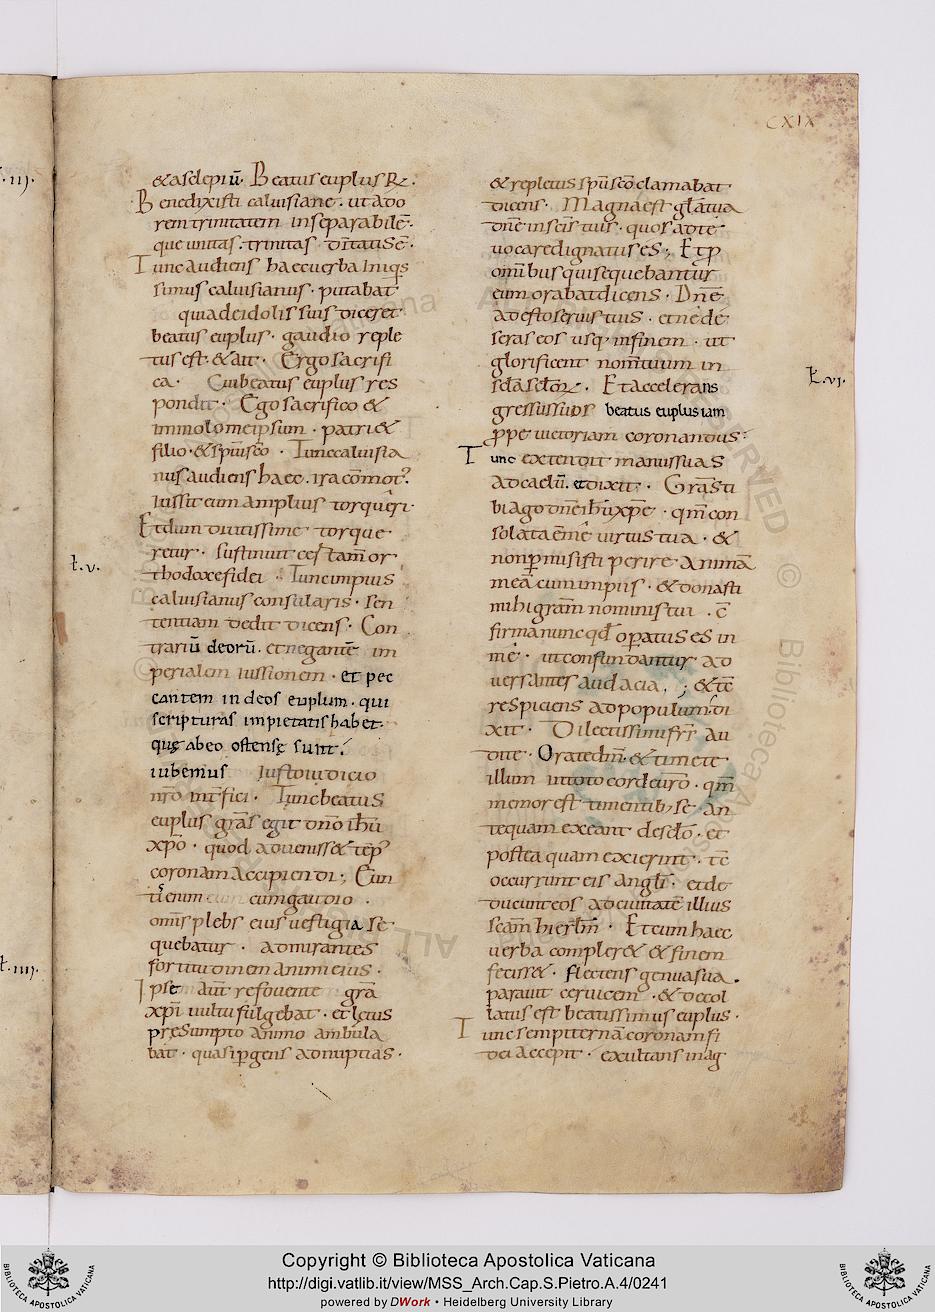 CXIX
&asclepiũ. Beatus euplus R.
Benedixisti caluisiane. ut ado
rem trinitatem inseparabilē.
que unitas. trinitas dīitatis ē.
Tunc audiens haec uerba iniqs
simus caluisianus. putabat
quia de idolis suis diceret
beatus euplus. gaudio reple
tus est. & ait. Ergo sacrifi
ca. Cui beatus euplus res
pondit. Ego sacrifico &
immolo meipsum. patri &
filio. & spūi scō. Tunc caluisia
nus audiens haec. ira cōmot?
iussit eum amplius torqueri.
Et dum diutissime torque
retur. sustinuit certam̄ or
thodoxe fidei. Tunc impius
caluisianus consularis. sen
tentiam dedit dicens. Con
trariũ deorũ. et negantē im
perialem iussionem. et pec
cantem in deos euplum. qui
scripturas impietatis habet.
quę ab eo ostensę sunt.
iubemus iusto iudicio
nr̄o int̄fici. Tunc beatus
euplus grās egit dn̄o ihū
xp̄o. quod aduenisset temp?
coronam accipiendi; Eun
ti enim cum gaudio.
omīs plebs eius uestigia se
quebatur. admirantes
fortitudinem animi eius.
Ipse aūt refouente grā
xp̄i uultu fulgebat. et lętus
pręsumpto animo ambula
bat. quasi p̄gens ad nuptias.
& repletus spū scō clamabat
dicens. Magna est glā tua
dn̄e in scīs tuis. quos ad te
uocare dignatus es; Et p̄
omībus qui sequebantur
eum orabat dicens. Dn̄e
adesto seruis tuis. et ne de
seras eos usq in finem. ut
glorificent nom̄ tuum in
scl̄a scl̄orꝝ. Et accelerans
gressus suos beatus euplus iam
p̄pe uictoriam coronandus.
Tunc extendit manus suas
ad caelũ. et dixit. Grās ti
bi ago dn̄e ihū xp̄e. qm̄ con
solata ē me uirtus tua. &
non p̄misisti perire animā
meā cum impiis. & donasti
mihi grām nominis tui. Cō
firma nunc qd̄ operatus es in
me. ut confundantur ad
uersantes audacia.; & tē
respiciens ad populum. di
xit. Dilectissimi fr̄s au
dite. Orate dm̄. & timete
illum in toto corde ur̄o. qm̄
memor est timentib; se. an
tequam exeant de scl̄o. et
postea quam exierint. tē
occurrunt eis angl̄i. et de
ducunt eos ad ciuitatē illius
scām hierl̄m. Et cum haec
uerba compler& & finem
feciss&. flectens genua sua.
parauit ceruicem. & decol
latus est beatissimus euplus.
Tunc sempiternā coronam fi
dei accepit. exultans in ag
ł. v.
ł. vi.
ł. iiii.
. iii.
Copyright © Biblioteca Apostolica Vaticana
http://digi.vatlib.it/view/MSS_Arch.Cap.S.Pietro.A.4/0241
powered by DWork • Heidelberg University Library
BIBLIOTECA APOSTOLICA VATICANA
BIBLIOTECA APOSTOLICA VATICANA